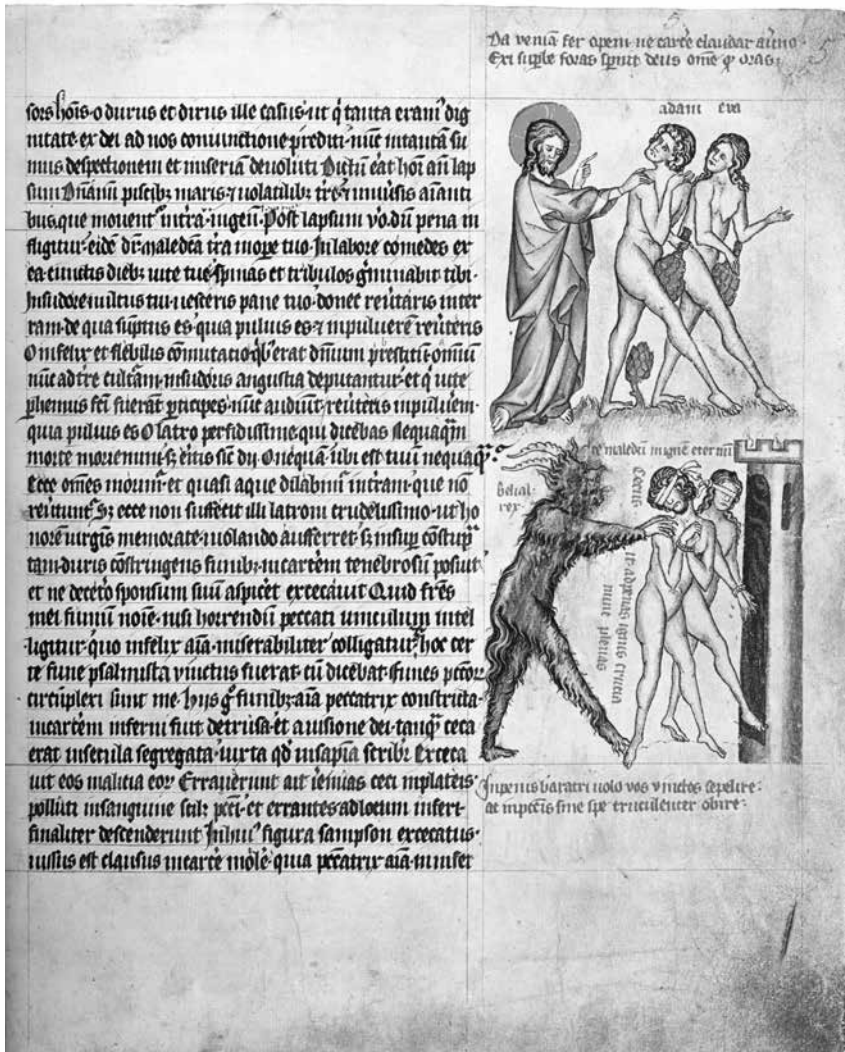 5
Da veniā fer opem ne carce claudar
Exi supple foras spnit deus ome oras
5
adam eva
sors hoīs o durus et dirus ille casus ut q tanta eram dig
nitate ex dei ad nos coniunctione prediti nūc intantā su
mus despectionem et miseriā devoluti Dictū erat hoī an lap
sum Dnamī piscibz maris volatilibz tre universis aīanti
bus que movent Post lapsum vo dū pena in
fligitur eidē dr maledca tra in opere tuo In labore comedes ex
ea cunctis diebz vite tue spinas et tribulos gminabit tibi
In sudore vultus tui vesceris pane tuo donec revtaris in ter
ram de qua suptus es quia pulvis es in pulverē reuteris
O infelix et flebilis cōmutatio qbz erat dnium prestitū omniū
nūc ad tre cultam in sudoris angustia deputantur et q vite
phennis fcī fuerāt pticipes nūc audiūt reuteris in pulvem
quia pulvis es O latro perfidissime qui dicebas Nequaqm
morte moriemini sz eritis sic dii ubi est tuū nequaq
Ecce omes morimr et quasi aque dilabimr in tram que nō
sz ecce non suffecit illi latroni crudelissimo ut ho
norē virgis memorate violando aufferret sz insup cōstup
tam duris cōstringens funibz in carcem tenebrosū posuit
et ne decero sponsum suū aspicet excecavit Quid frēs
mei funiū noīe nisi horrendū peccati vinculum intel
ligitur quo infelix aīa miserabiliter colligatur hoc cer
te fune psalmista vinctus fuerat cū dicebat funes pccor
circūplexi sunt me hiis g funibz aīa peccatrix constricta
in carcem inferni fuit detrusa et a visione dei tanq ceca
erat in secula segregata iuxta qd in sapīa scribr Exceca
vit eos malicia eor Erraverunt ait ceci in plateis
polluti in sanguine scilz pcci et errantes ad locum inferi
finaliter descenderunt In hui figura sampson excecatus
iussus est clausus in carce mole quia peccatrix aīa in infer
maledcī in ignē eternū
belial
rex
Cecus
ite ad penas ignis
In penis baratri volo vos vinctos sepelire
ac in pccis sine spe truculenter obire